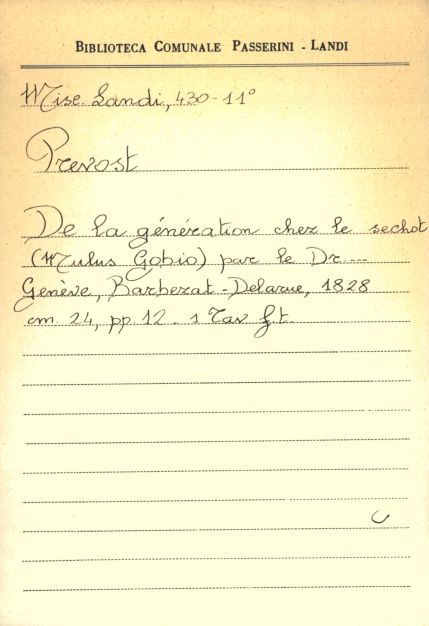 BIBLIOTECA COMUNALE PASSERINI - LANDI
Misc. Landi, 430-11°
Prevost
De la génération chez le sechot
(Mulus Gobio) par le Dr ---
Genève, Barbezat-Delarue, 1828
cm. 24, pp. 12 - 1 Tav f.t.